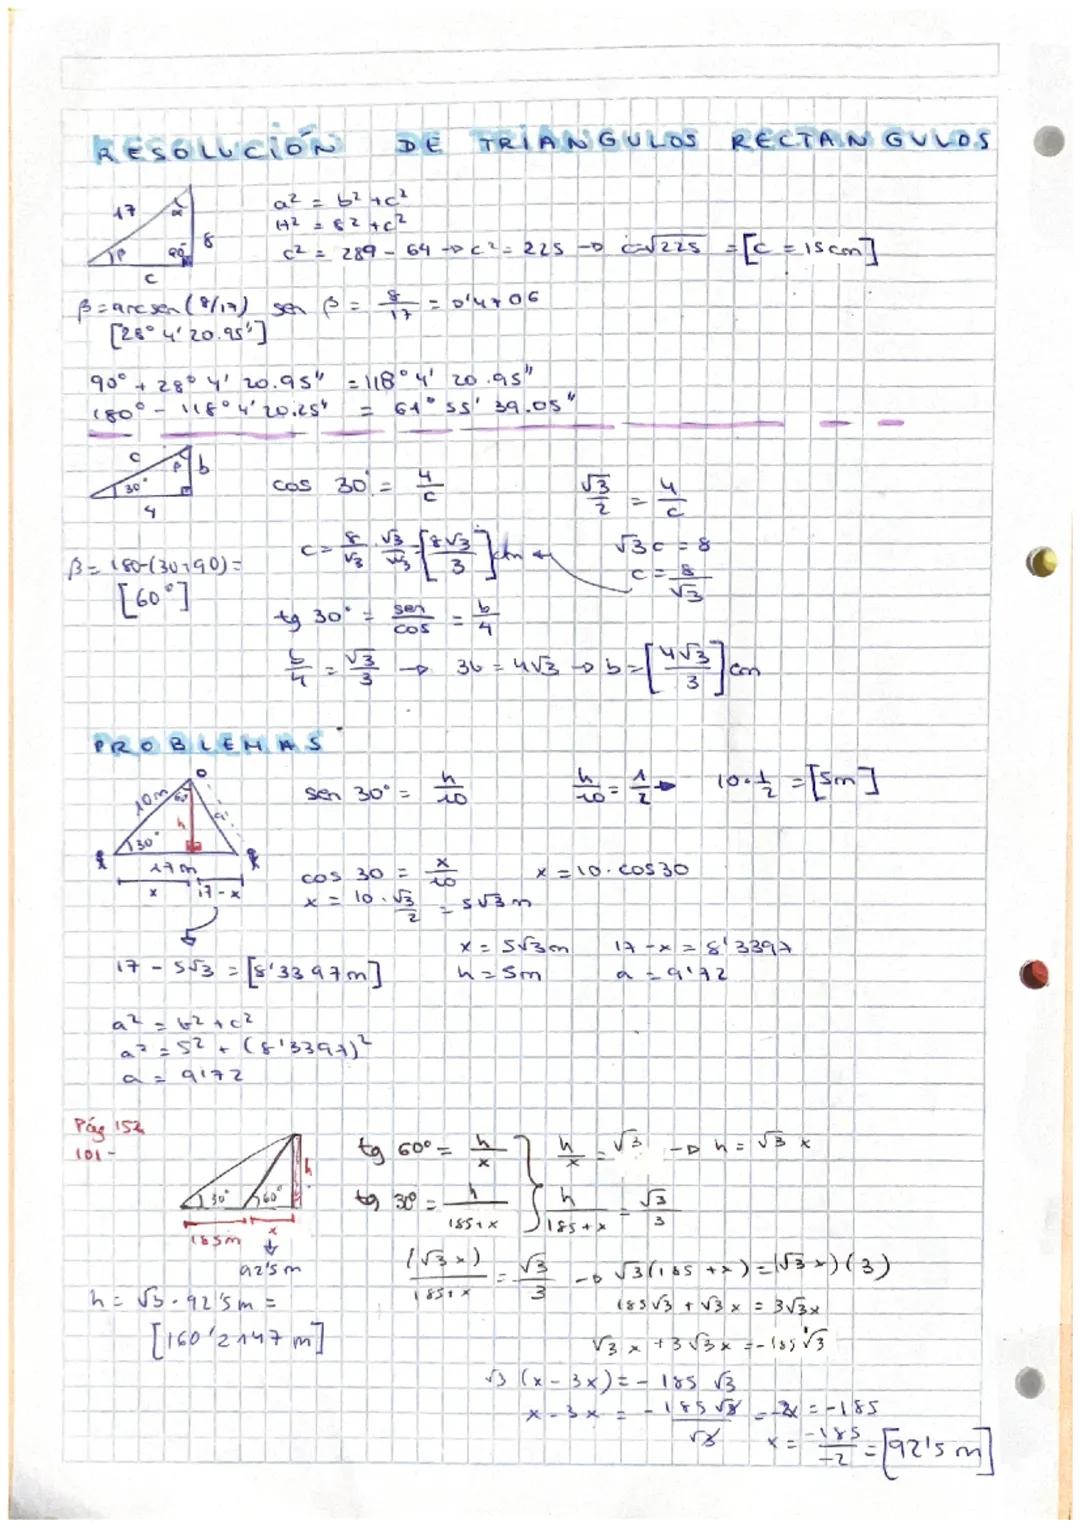 RESOLUCIÓN DE TRIANGULOS RECTANGULOS
17 α 8 β 90° c
a² = b² + c²
17² = 8² + c²
c² = 289 - 64 → c² = 225 → c=√225 = [c = 15cm]
β = arcsen (8/17) sen β = 8/17 = 0'4706
[28° 4' 20.95"]
90° + 28° 4' 20.95" = 118° 4' 20.95"
180° - 118° 4' 20.25" = 61° 55' 39.05"
c β b 30° 4
cos 30° = 4/c √3/2 = 4/c
c = 8/√3 · √3/√3 = [8√3/3] cm √3 c = 8
β = 180-(30+90) = c = 8/√3
[60°]
tg 30° = sen/cos = b/4
b/4 = √3/3 → 3b = 4√3 → b = [4√3/3] cm
PROBLEMAS
10m 60° h a 30° 17m x 17-x
sen 30° = h/10 h/10 = 1/2 → 10·1/2 = [5m]
cos 30 = x/10 x = 10·cos30
x = 10·√3/2 = 5√3 m
x = 5√3m 17-x = 8'3397
17 - 5√3 = [8'3397m] h = 5m a = 9'72
a² = b² + c²
a² = 5² + (8'3397)²
a = 9'72
Pág 152
101-
30° 60° h 185m x
92'5 m
tg 60° = h/x } h/x = √3 → h = √3 x
tg 30° = h/185+x } h/185+x = √3/3
(√3x)/185+x = √3/3 → √3(185+x) = (√3x)(3)
h = √3·92'5m = 185√3 + √3x = 3√3x
[160'2147 m] √3x + 3√3x = -185√3
√3 (x-3x) = -185 √3
x-3x = -185√3/√3 = -2x = -185
x = -185/-2 = [92'5 m]